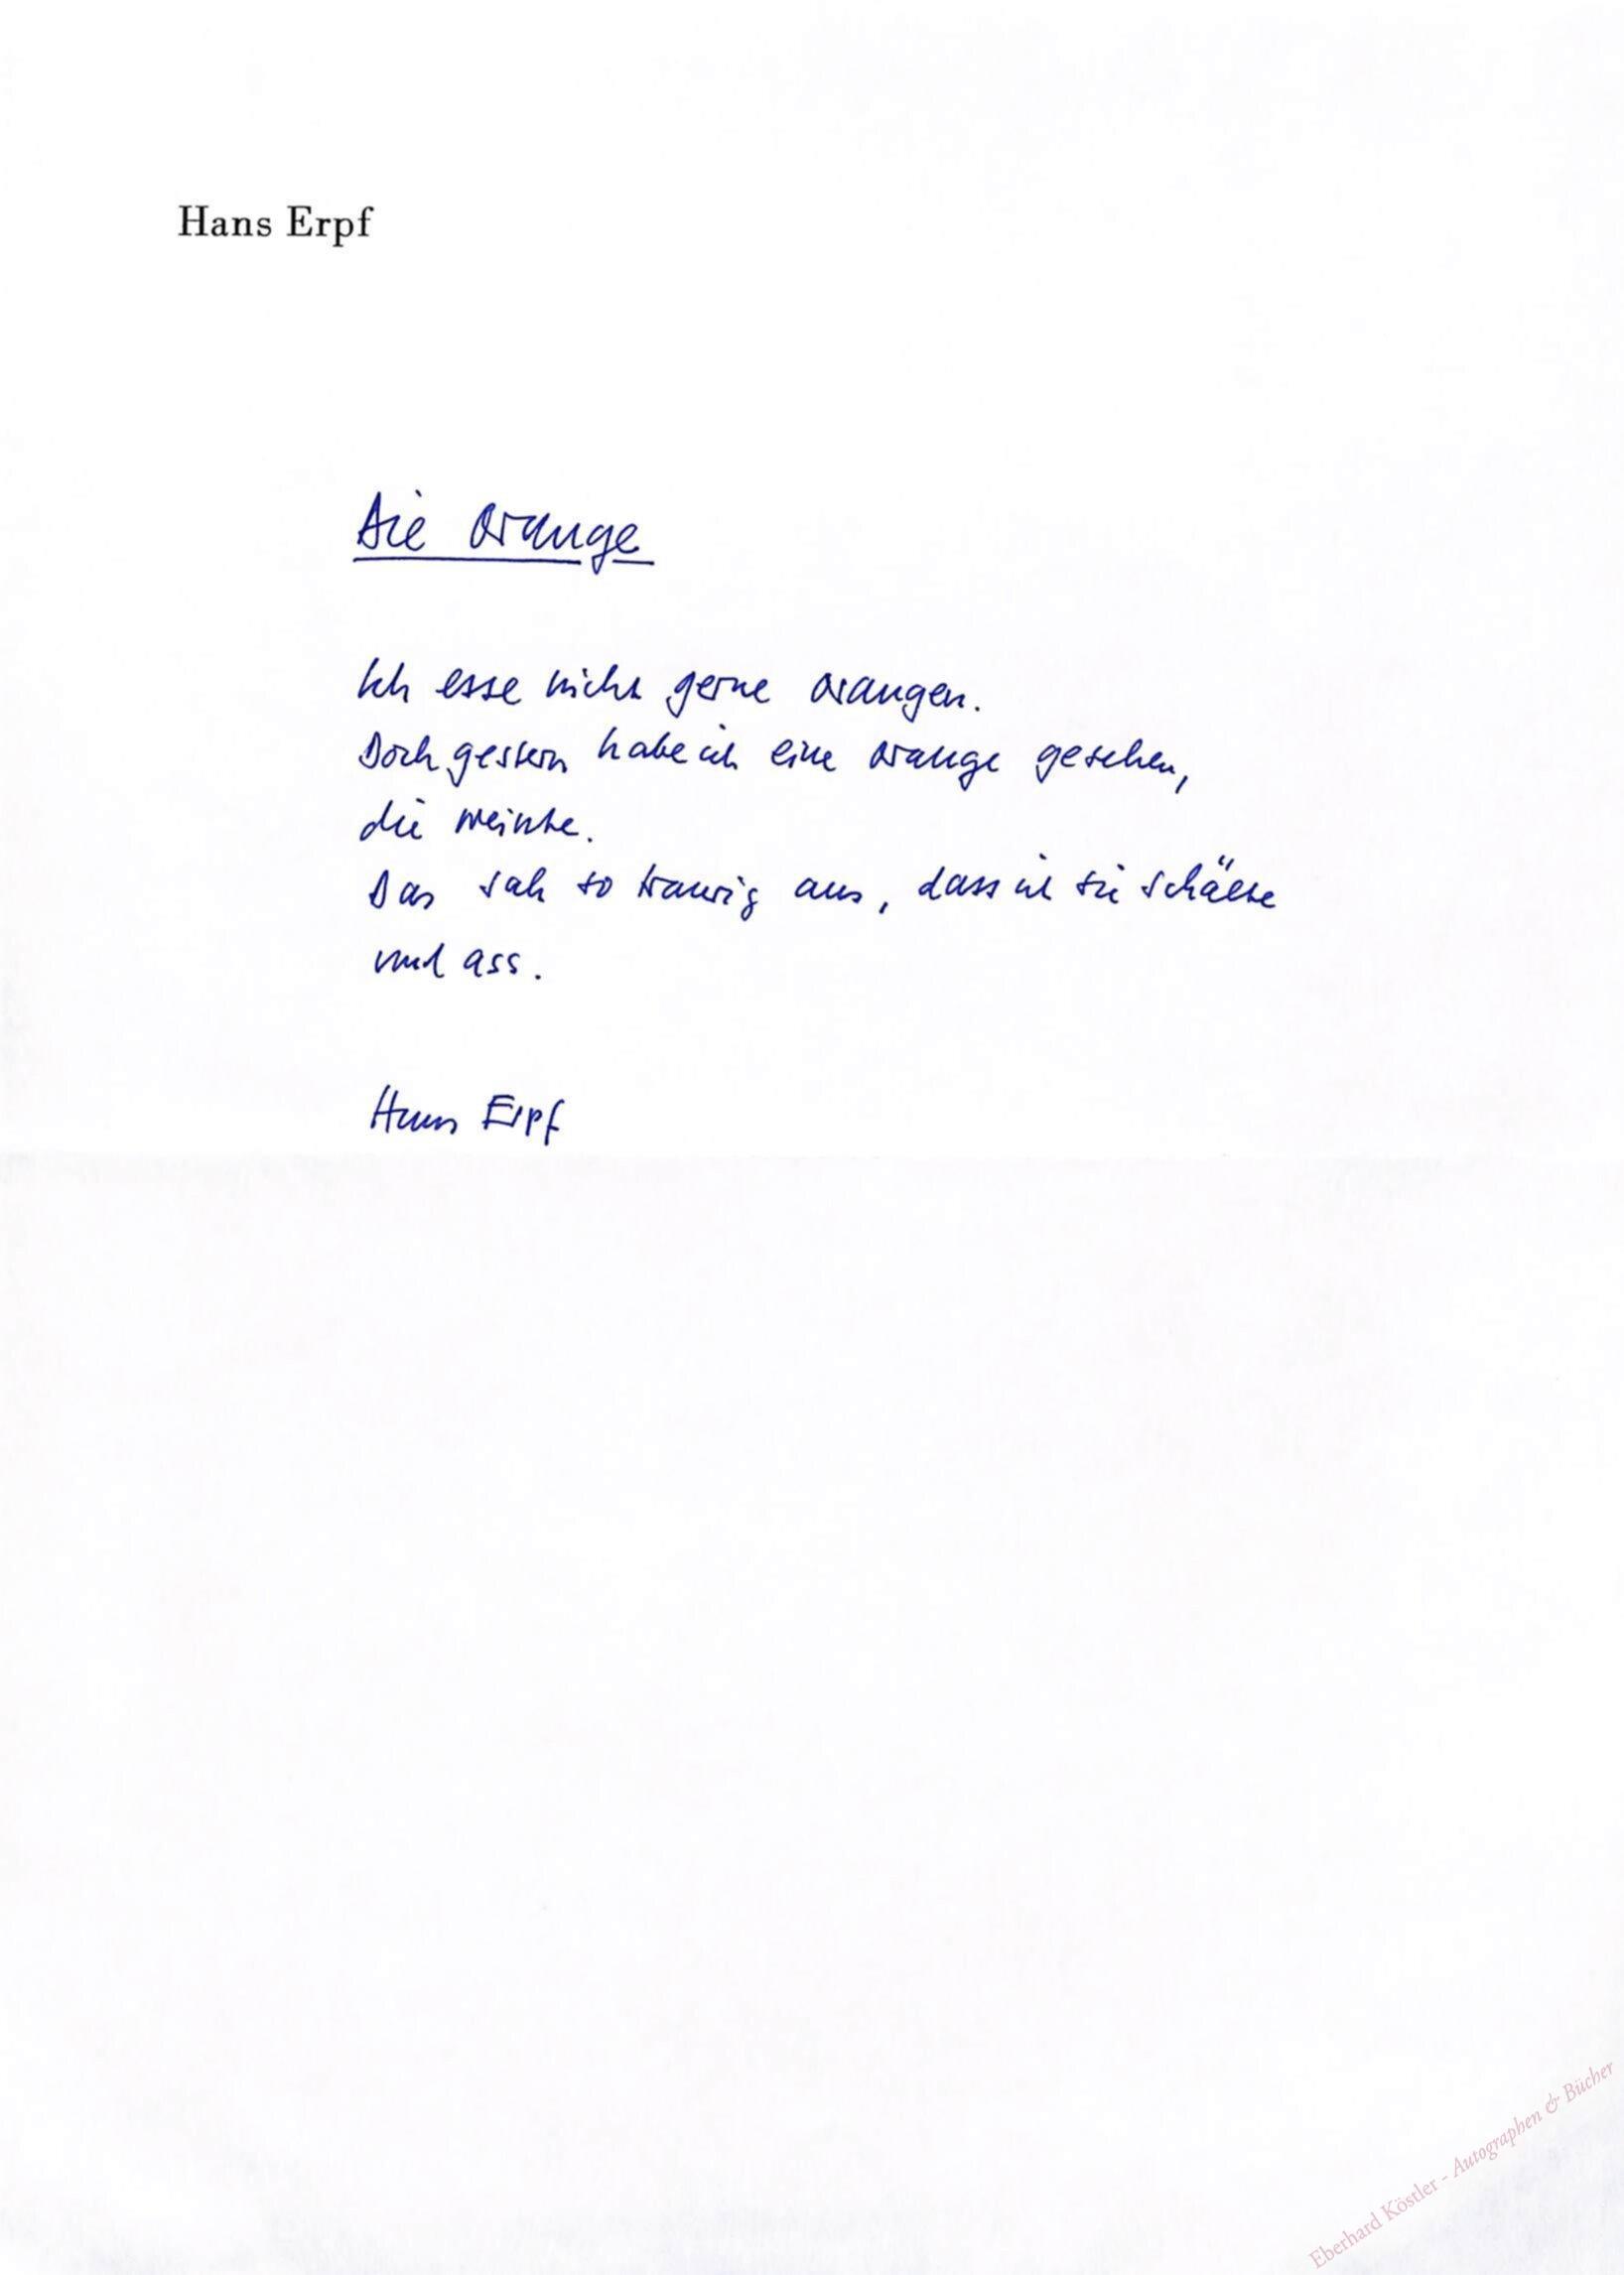 Hans Erpf
Die Orange
Ich esse nicht gerne Orangen.
Doch gestern habe ich eine Orange gesehen,
die weinte.
Das sah so traurig aus, dass ich sie schälte
und ass.
Hans Erpf
Eberhard Köstler - Autographen & Bücher